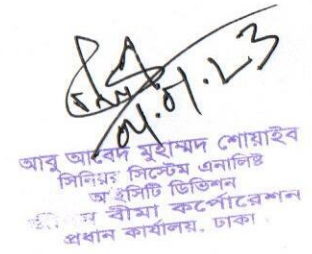 ০৮.০১.২৩
আবু আবেদ মুহাম্মদ শোয়াইব
সিনিয়র সিস্টেম এনালিষ্ট
আইসিটি ডিভিশন
বীমা কর্পোরেশন
প্রধান কার্যালয়, ঢাকা